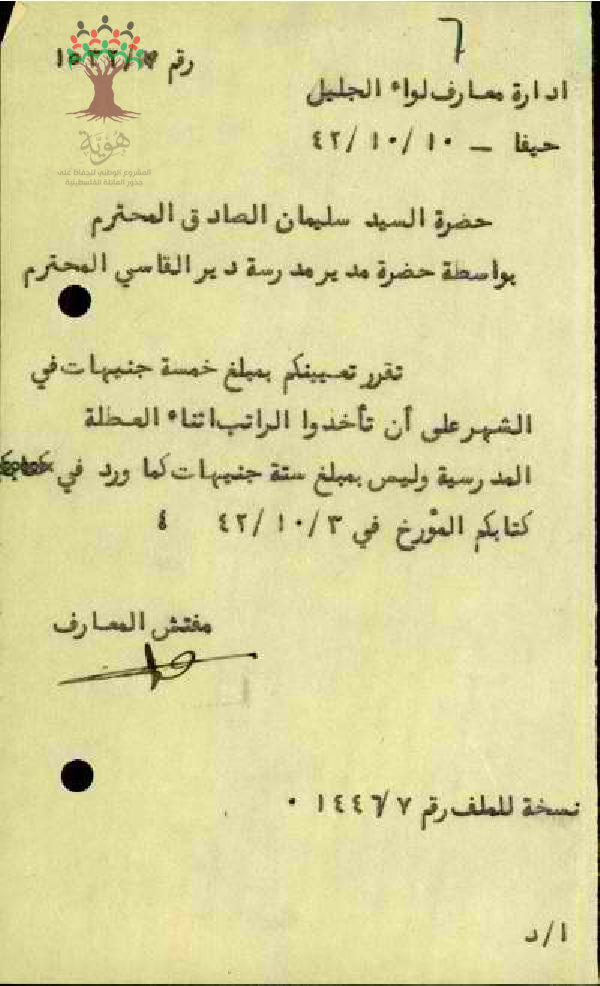 ٦
رقم ١٥٣٢/٧
ادارة معارف لواء الجليل
حيفا _ ٤٢/١٠/١٠
هويّة
المشروع الوطني للحفاظ على
جذور العائلة الفلسطينية
حضرة السيد سليمان الصادق المحترم
بواسطة حضرة مدير مدرسة دير القاسي المحترم
تقرر تعيينكم بمبلغ خمسة جنيهات في
الشهر على أن تأخذوا الراتب اثناء العطلة
المدرسية وليس بمبلغ ستة جنيهات كما ورد في
كتابكم المؤرخ في ٤٢/١٠/٣ ٤
مفتش المعارف
نسخة للملف رقم ١٤٤٦/٧ ٠
ا/د